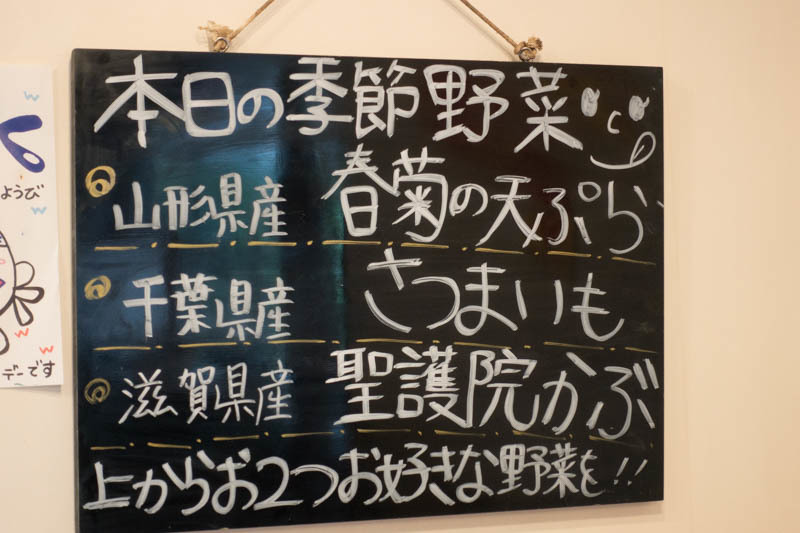 本日の季節野菜
山形県産 春菊の天ぷら
千葉県産 さつまいも
滋賀県産 聖護院かぶ
上からお2つお好きな野菜を!!
ようび
デーです